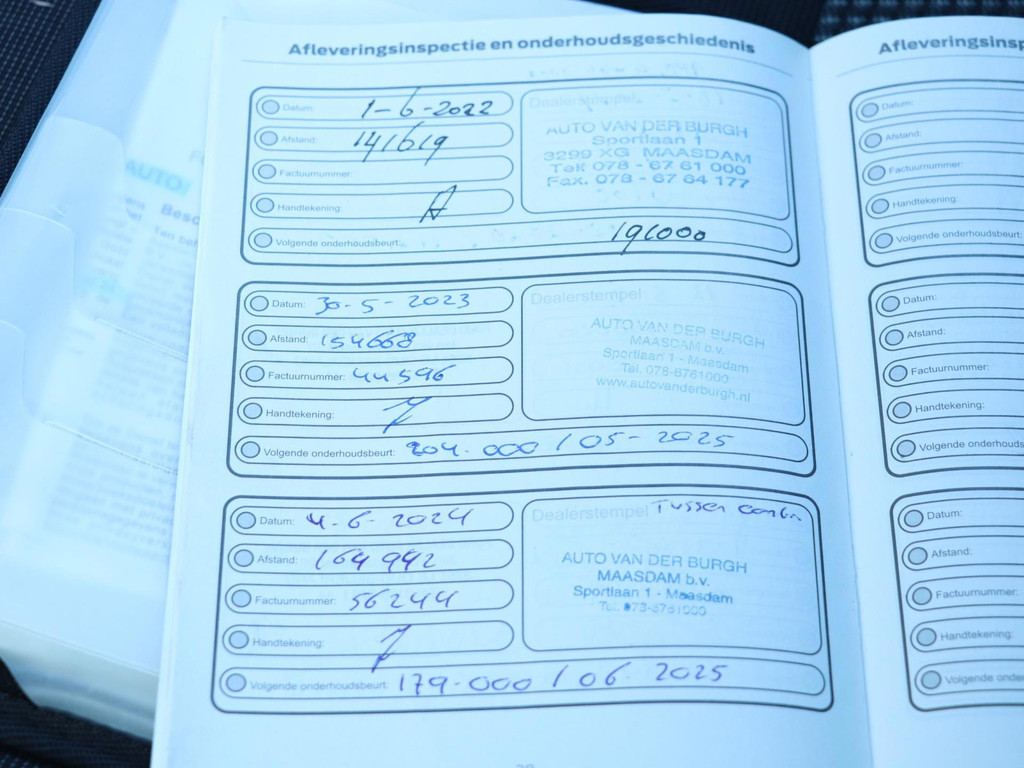 Afleveringsinspectie en onderhoudsgeschiedenis
Datum: 1-6-2022
Afstand: 141619
Factuurnummer:
Handtekening:
Volgende onderhoudsbeurt: 191000
Dealerstempel
AUTO VAN DER BURGH
Sportlaan 1
3299 XG MAASDAM
Tel: 078 - 67 61 000
Fax. 078 - 67 64 177
Datum: 30-5-2023
Afstand: 154668
Factuurnummer: 44596
Handtekening:
Volgende onderhoudsbeurt: 204.000 / 05-2025
Dealerstempel
AUTO VAN DER BURGH
MAASDAM b.v.
Sportlaan 1 - Maasdam
Tel. 078-6761000
www.autovanderburgh.nl
Datum: 4-6-2024
Afstand: 164942
Factuurnummer: 56244
Handtekening:
Volgende onderhoudsbeurt: 179.000 / 06.2025
Dealerstempel Tussen
AUTO VAN DER BURGH
MAASDAM b.v.
Sportlaan 1 - Maasdam
Datum:
Afstand:
Factuurnummer:
Handtekening:
Volgende onderhoudsbeurt:
Datum:
Afstand:
Factuurnummer:
Handtekening:
Volgende
Datum:
Afstand:
Factuurnummer:
Handtekening:
Volgende